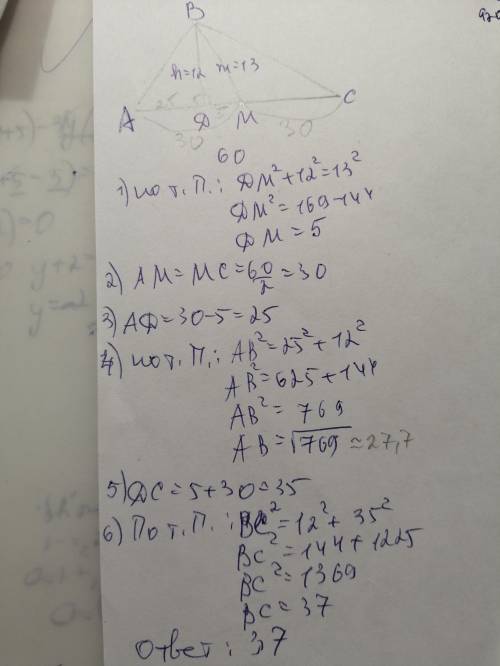 B
h=12 m=13
A 25 5 C
Д M
30 30
60
1) по т. П.: ДM²+12²=13²
ДM²=169-144
ДM=5
2) AM=MC=60/2=30
3) AД=30-5=25
4) по т. П.: AB²=25²+12²
AB²=625+144
AB²=769
AB=√769≈27,7
5) ДC=5+30=35
6) По т. П.: BC²=12²+35²
BC²=144+1225
BC²=1369
BC=37
Ответ: 37
y+2=